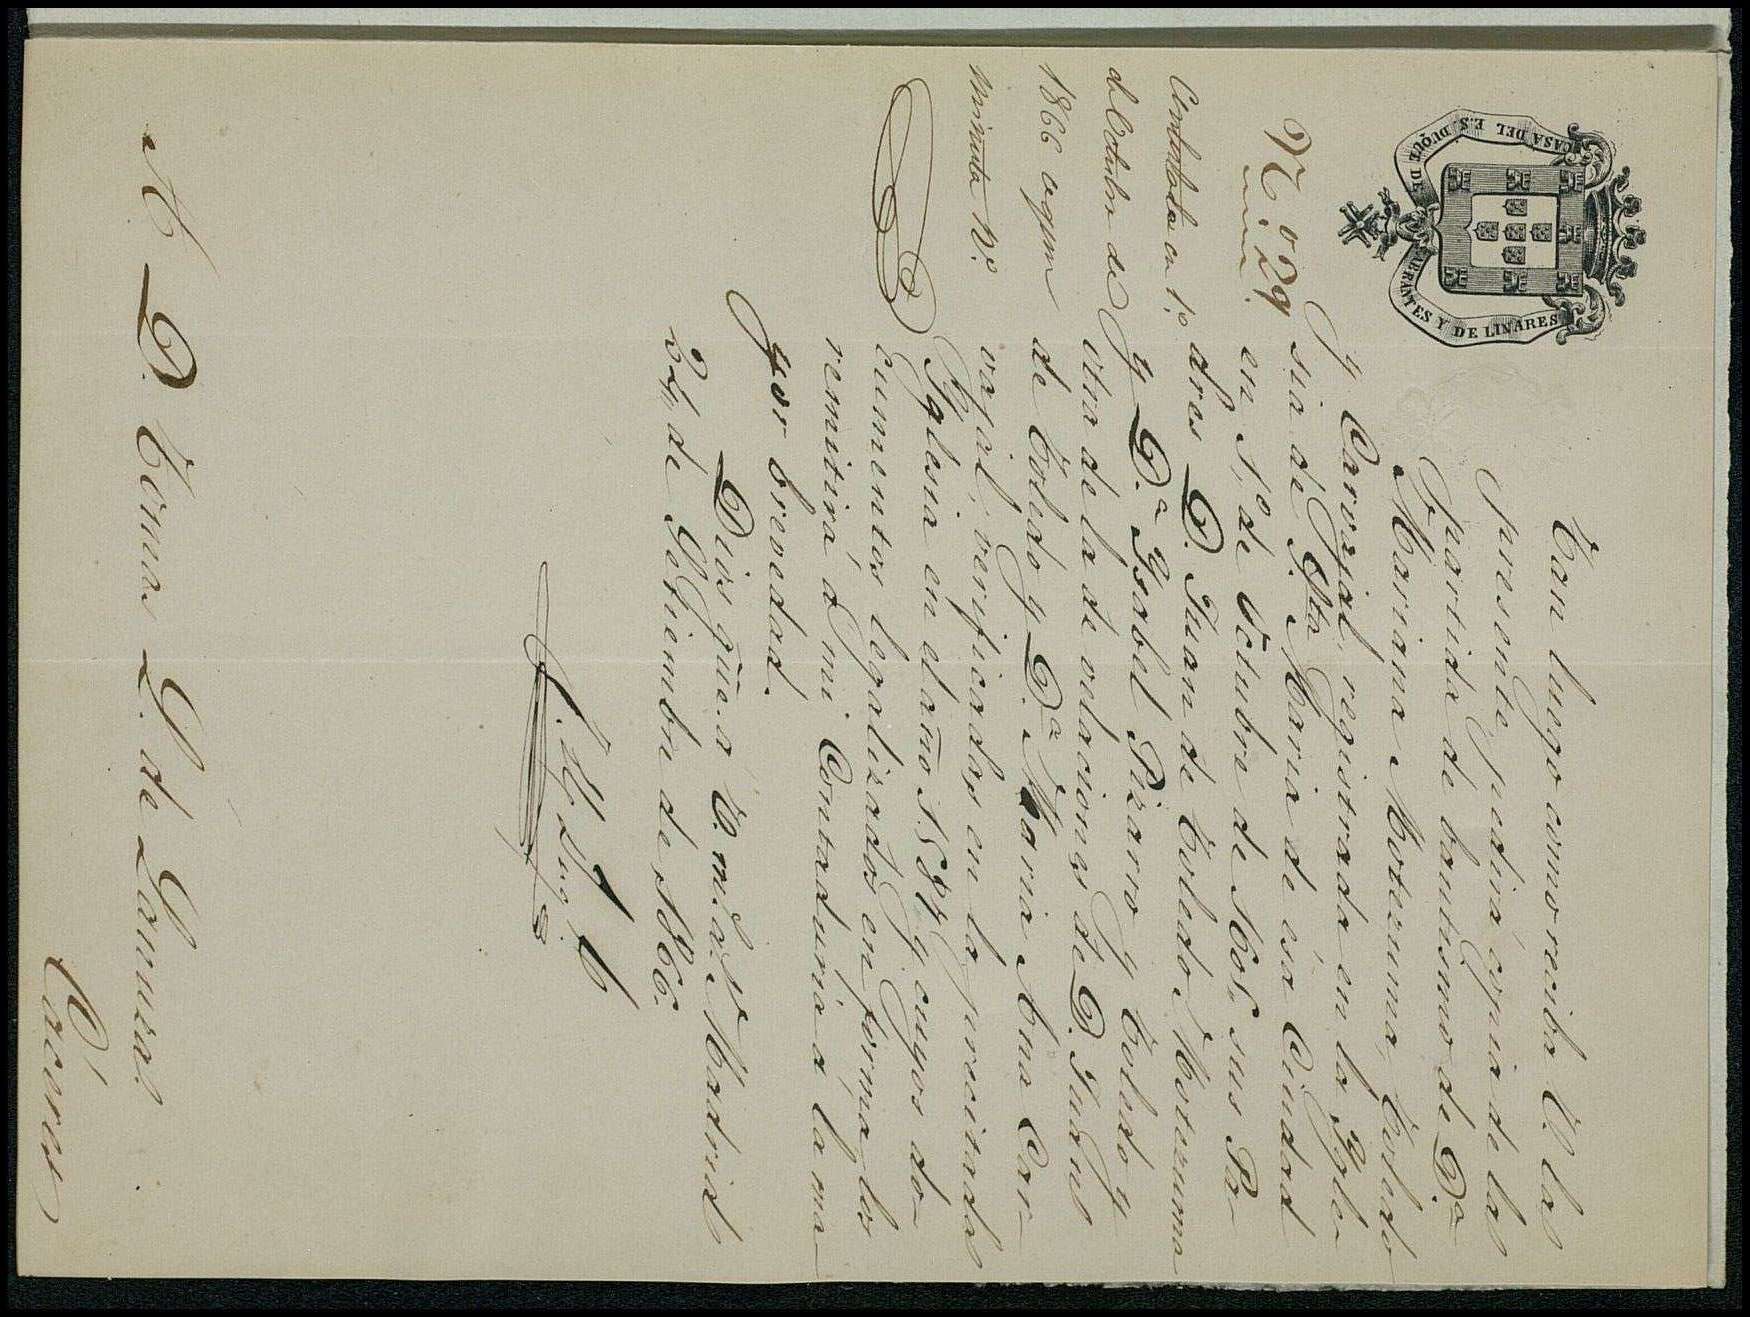 CASA DEL E.S. DUQUE DE ABRANTES Y DE LINARES
N.º 29
Contestada en 1.º
de Octubre de
1866 segun
minuta N.º
Tan luego como reciba V. la
presente, pedirá copia de la
partida de bautismo de D.ª
Mariana Motezuma, Toledo
y Carvajal, registrada en la Igle-
sia de Sta. Maria de esa Ciudad
en 1.º de Octubre de 1605, sus Pa-
dres D. Juan de Toledo Motezuma
y D.ª Ysabel Pizarro y Toledo y
otra de la de velaciones de D. Juan
de Toledo y D.ª Maria Ana Car-
vajal, verificadas en la precitada
Yglesia en el año 1584 y cuyos do-
cumentos legalizados en forma los
remitirá á mi Contaduria a la ma-
yor brevedad.
Dios gue. a V. m.s a.s Madrid
24 de Setiembre de 1866.
A D. Tomas L. de Lanuza.
Cáceres